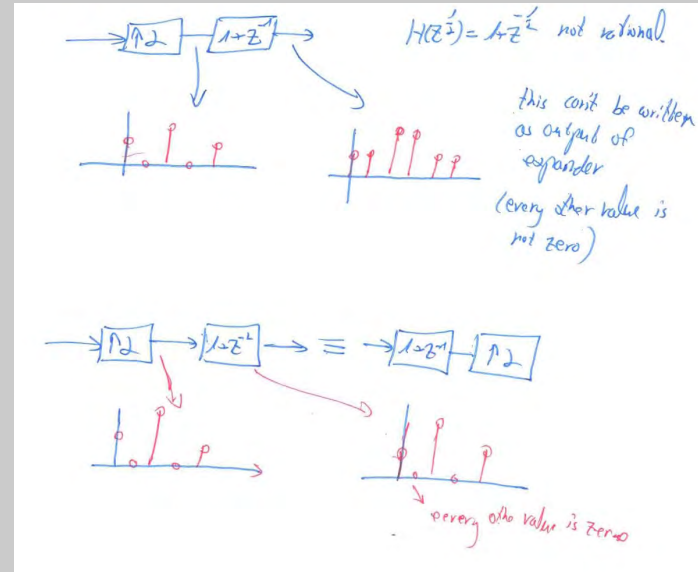 ↑2 1+z⁻¹ H(z^½)= 1+z^-½ not rational.
this can't be written
as output of
expander
(every other value is
not zero)
↑2 1+z⁻² ≡ 1+z⁻¹ ↑2
every othe value is zero